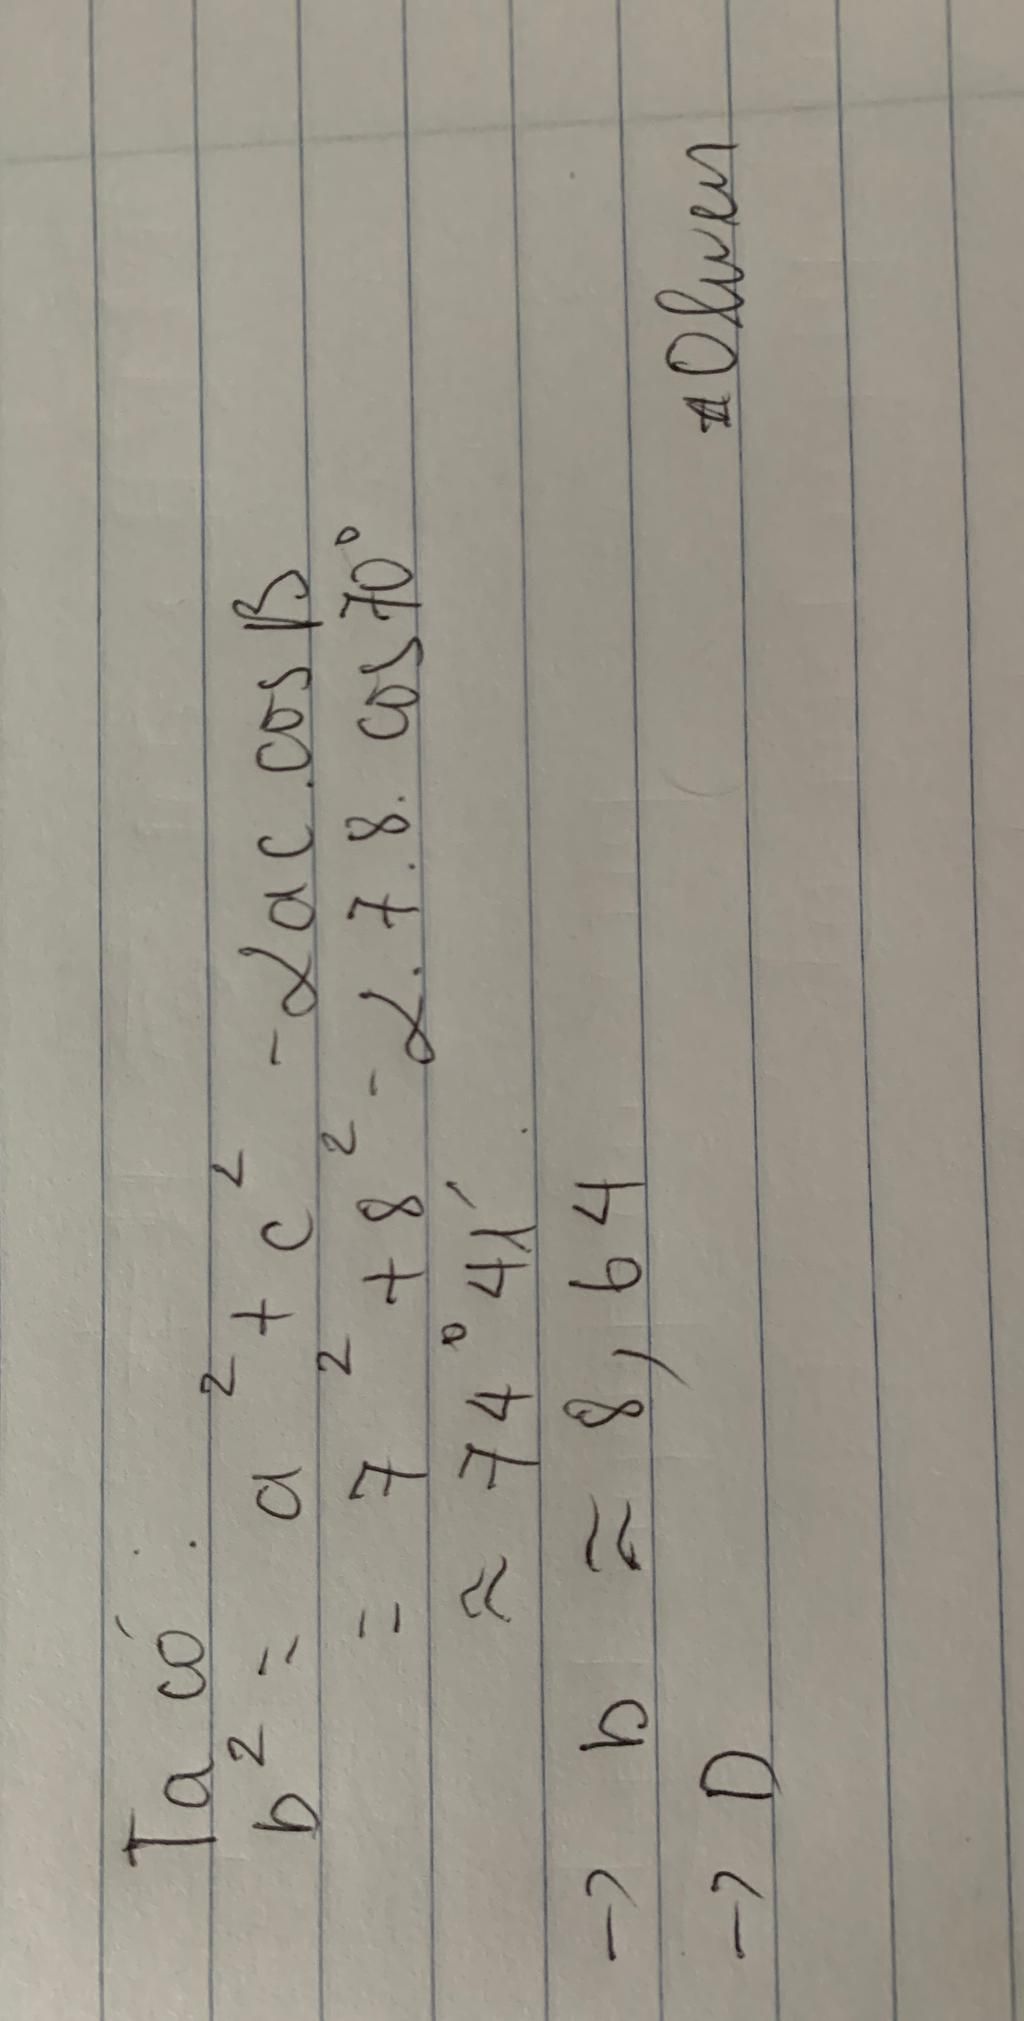 Ta có:
b² = a² + c² - 2ac.cosB
= 7² + 8² - 2.7.8.cos70°
≈ 74°41'
→ b ≈ 8,64
→ D
#Olwen